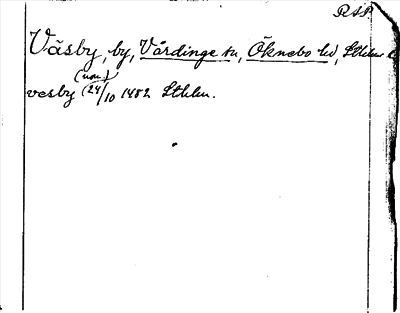 RAP.
Väsby, by, Vårdinge sn, Öknebo hd, Sthlms l
(nom.)
vesby (24/10 1402 Sthlm.